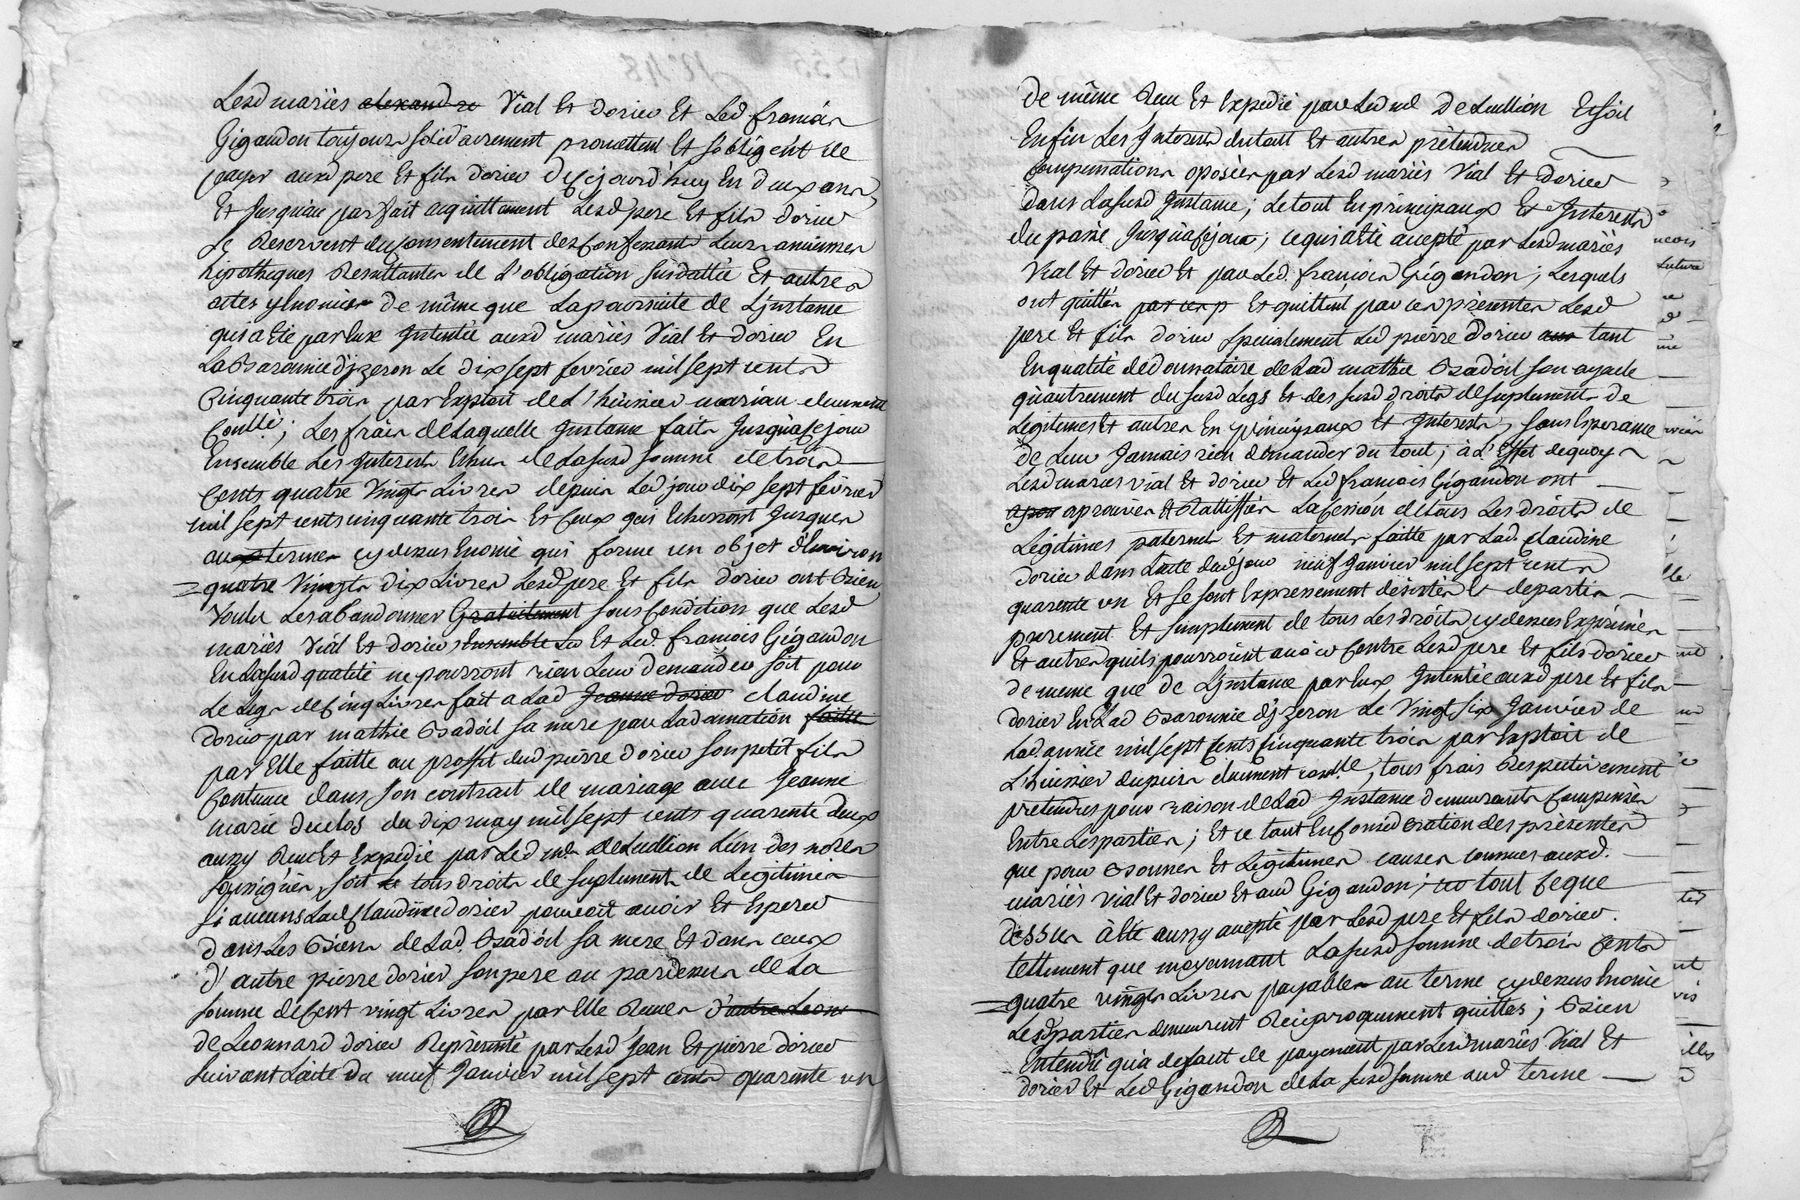 Lesd mariés alexandre Vial Et Dorieu Et Led. françois
Gigandon toujours solidairement promettent Et s'obligent de
payer auxd pere Et fils Dorieu Dicejourd'huy En deux ans
Et Jusqu'au parfait acquittement Lesd pere Et fils dorieu
se Reservent du consentement des Confessants Leurs anciennes
hipotheques Resultantes de L'obligation susdattée Et autres
actes y Enoncés de même que Lapoursuite de L'jnstance
qui a Eté par Eux Intentée auxd mariés Vial Et dorieu En
La Baronnie d'jzeron Le dix sept fevrier mil sept cents
Cinquante trois par Exploit de L'huissier mariau duement
Conllé; Les frais de Laquelle Instance faits Jusqu'àcejour
Ensemble Les Interests Echus de Lasusd somme de trois
Cents quatre Vingts Livres depuis Led jour dix sept fevrier
mil sept cents cinquante trois Et Ceux qui Echerront Jusques
aux termes cy dessus Enoncé qui forme un objet d'Environ
quatre Vingts Dix Livres Lesd pere Et fils Dorieu ont Bien
Voulu Les abandonner Gratuitement sous Condition que Lesd
mariés Vial Et dorieu Ensemble Le Et Led. francois Gigandon
En Lasusd qualité ne pourront rien Leur demander soit pour
Le Legs de Cinq Livres fait a Lad Jeanne Dorieu claudine
Dorieu par mathie Badoil sa mere par Ladonnation faitte
par Elle faitte au proffit dud pierre dorieu son petit fils
Contenue dans son contrait de mariage avec Jeanne
marie duclos du dix may mil sept cents quarente deux
aussy Receu Et Expedié par Led me. deLullion L'un des notres
soussignés, soit de tous droits de suplement de Legitimes
si aucuns Lad Claudine dorier pouvoit avoir Et Esperer
dans Les Biens de Lad. Badoil sa mere Et dans ceux
d'autre pierre dorier son pere au pardessus de La
somme de Cent vingt Livres par Elle Receues d'autre Leon
de Leonnard dorieu Représenté par Lesd Jean Et pierre dorieu
suivant L'acte du neuf Janvier mil sept cents quarente un
de même Receu Et Expedié par Led me DeLullion Et soit
Enfin Les Interests du tout Et autres prétendues
Compensations oposées par Lesd mariés Vial Et Dorieu
dans Lasusd Instance; Le tout En principaux Et Interests
du passé Jusqu'àcejour; ce qui a Eté accepté par Lesd mariés
Vial Et dorieu Et par Led. françois Gigandon; Lesquels
ont quittés par ces p Et quittent par ces presentes Lesd
pere Et fils dorieu specialement Led pierre Dorieu aux tant
En qualité de donnataire de Lad mathie Badoil son ayeule
qu'autrement du susd Legs Et des susd droits de suplements de
Legitimes Et autres En principaux Et Interests, sans Esperance
de Leur Jamais rien demander du tout; à L'Effet de quoy
Lesd mariés vial Et dorieu Et Led francois Gigandon ont
apou aprouver Et Rattiffiés La Cession de tous Les droits de
Legitimes paternels Et maternels faitte par Lad. claudine
dorieu dans L'acte dud jour neuf Janvier mil sept cents
quarente un Et se sont Expressement désistés Et departis
purement Et simplement de tous Les droits cy dessus Exprimés
Et autres qu'ils pourroient avoir Contre Lesd pere Et fils dorieu
de meme que de L'jnstance par Eux Intentée auxd pere Et fils
dorier En Lad Baronnie d'jzeron Le Vingt six Janvier de
Lad. année mil sept Cents Cinquante trois par Exploit de
L'huissier dupuis duement conllé, tous frais Respectivement
pretendus pour raison de Lad Instance demeurants Compensés
Entre Les parties; Et ce tout En Consideration des presentes
que pour Bonnes Et Legitimes causes connues auxd.
mariés vial Et dorieu Et aud Gigandon; ce tout Ceque
dessus à Eté aussy accepté par Lesd pere Et fils dorieu.
tellement que moyennant Lasusd somme de trois Cents
quatre vingts Livres payables au terme cy dessus Enoncé
Lesd parties demeurent Reciproquement quittes; Bien
Entendu qu'a defaut de payement par Lesd mariés Vial Et
dorier Et Led Gigandon de La susd somme aud terme